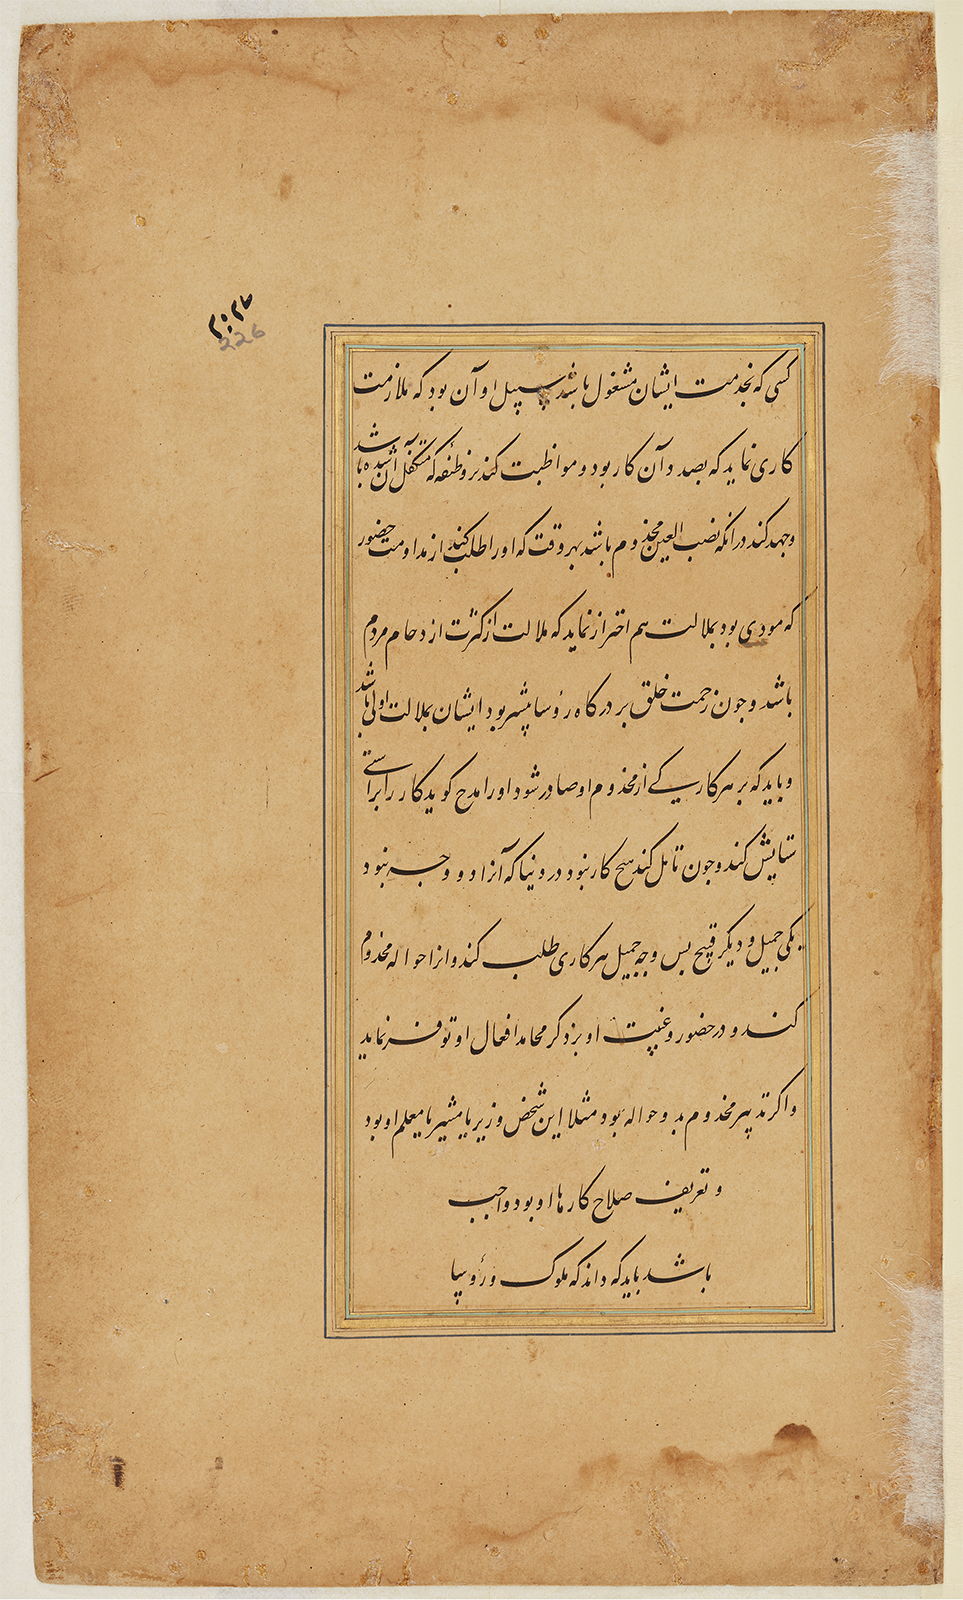 ۲۲۶
226
کسی که بخدمت ایشان مشغول باشد سبیل او آن بود که ملازمت
کاری نماید که بصدد آن کار بود و مواظبت کند بر وظیفه که متکفل آن شده باشد
وجهد کند در انکه نصب العین مخدوم باشد بهر وقت که او را طلب کند از مداومت حضور
که مودی بود بملالت هم احتراز نماید که ملالت از کثرت ازدحام مردم
باشد وجون زحمت خلق بر درکاه رؤسا بیشتر بود ایشان بملالت اولی باشد
وباید که بر هر کاری که از مخدوم او صادر شود او را مدح کوید کار را براستی
ستایش کند وجون تامل کند هیچ کار نبود در دنیا که آنرا دو وجه نبود
یکی جمیل و دیکر قبیح بس وجه جمیل هر کاری طلب کند وانرا حواله مخدوم
کند و در حضور وغیبت او بر ذکر محامد افعال او توفر نماید
واکر تدبیر مخدوم بدو حواله بود مثلا این شخص وزیر یا مشیر یا معلم او بود
و تعریف صلاح کارها او بود واجب
باشد باید که داند که ملوک ورؤسا